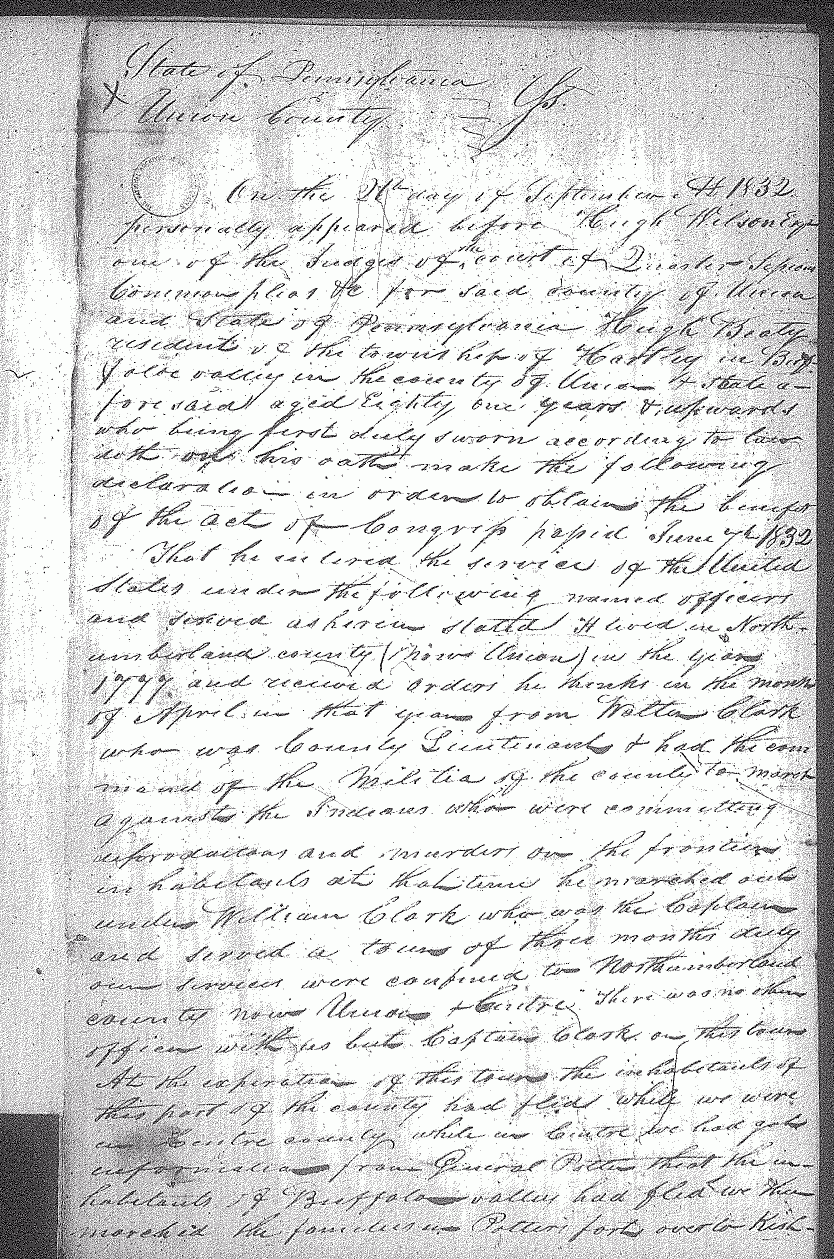 State of Pennsylvania
Union County Ss.
On the 26th day of September AD 1832
personally appeared before Hugh Wilson Esqr
one of the Judges of the court of Quarter Session
Common pleas &c for said county of Union
and State of Pennsylvania Hugh Beaty
resident of the township of Hartley in Buf
faloe valley in the county of Union & State a-
fore said aged Eighty one years & upwards
who being first duly sworn according to law
doth on his oath make the following
declaration in order to obtain the benefit
of the act of Congress passed June 7th 1832
That he entered the service of the United
States under the following named officers
and served as herein stated I lived in North-
umberland county (now Union) in the year
and received orders he thinks in the month
of April in that year from Walter Clark
who was County Lieutenant & had the com
mand of the Militia of the county to march
against the Indians who were committing
depredations and murders on the frontier
inhabitants at that time he marched out
under William Clark who was the Captain
and served a tour of three months duty
our services were confined to Northumberland
county now Union & Centre There was no other
officer with us but Captain Clark on this tour
At the expiration of this tour the inhabitants of
this part of the county had fled while we were
in Centre county while in Centre we had got
information from General Potter that the in-
habitants of Buffaloe vallies had fled we then
marched the families in Potters fort over to Kish-